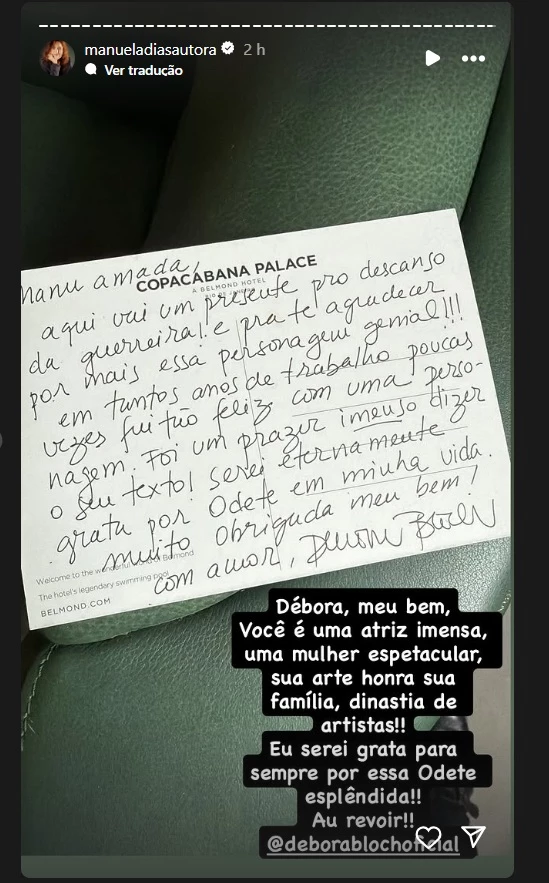 manueladiasautora 2 h
Ver tradução
Manu amada,
COPACABANA PALACE
A BELMOND HOTEL
RIO DE JANEIRO
aqui vai um presente pro descanso
da guerreira! e pra te agradecer
por mais essa personagem genial!!!
em tantos anos de trabalho poucas
vezes fui tão feliz com uma perso-
nagem. Foi um prazer imenso dizer
o seu texto! serei eternamente
grata por Odete em minha vida.
muito obrigada meu bem!
com amor,
Welcome to the wonderful world of Belmond
The hotel's legendary swimming pool
BELMOND.COM
Débora, meu bem,
Você é uma atriz imensa,
uma mulher espetacular,
sua arte honra sua
família, dinastia de
artistas!!
Eu serei grata para
sempre por essa Odete
esplêndida!!
Au revoir!!
@deborablochoficial